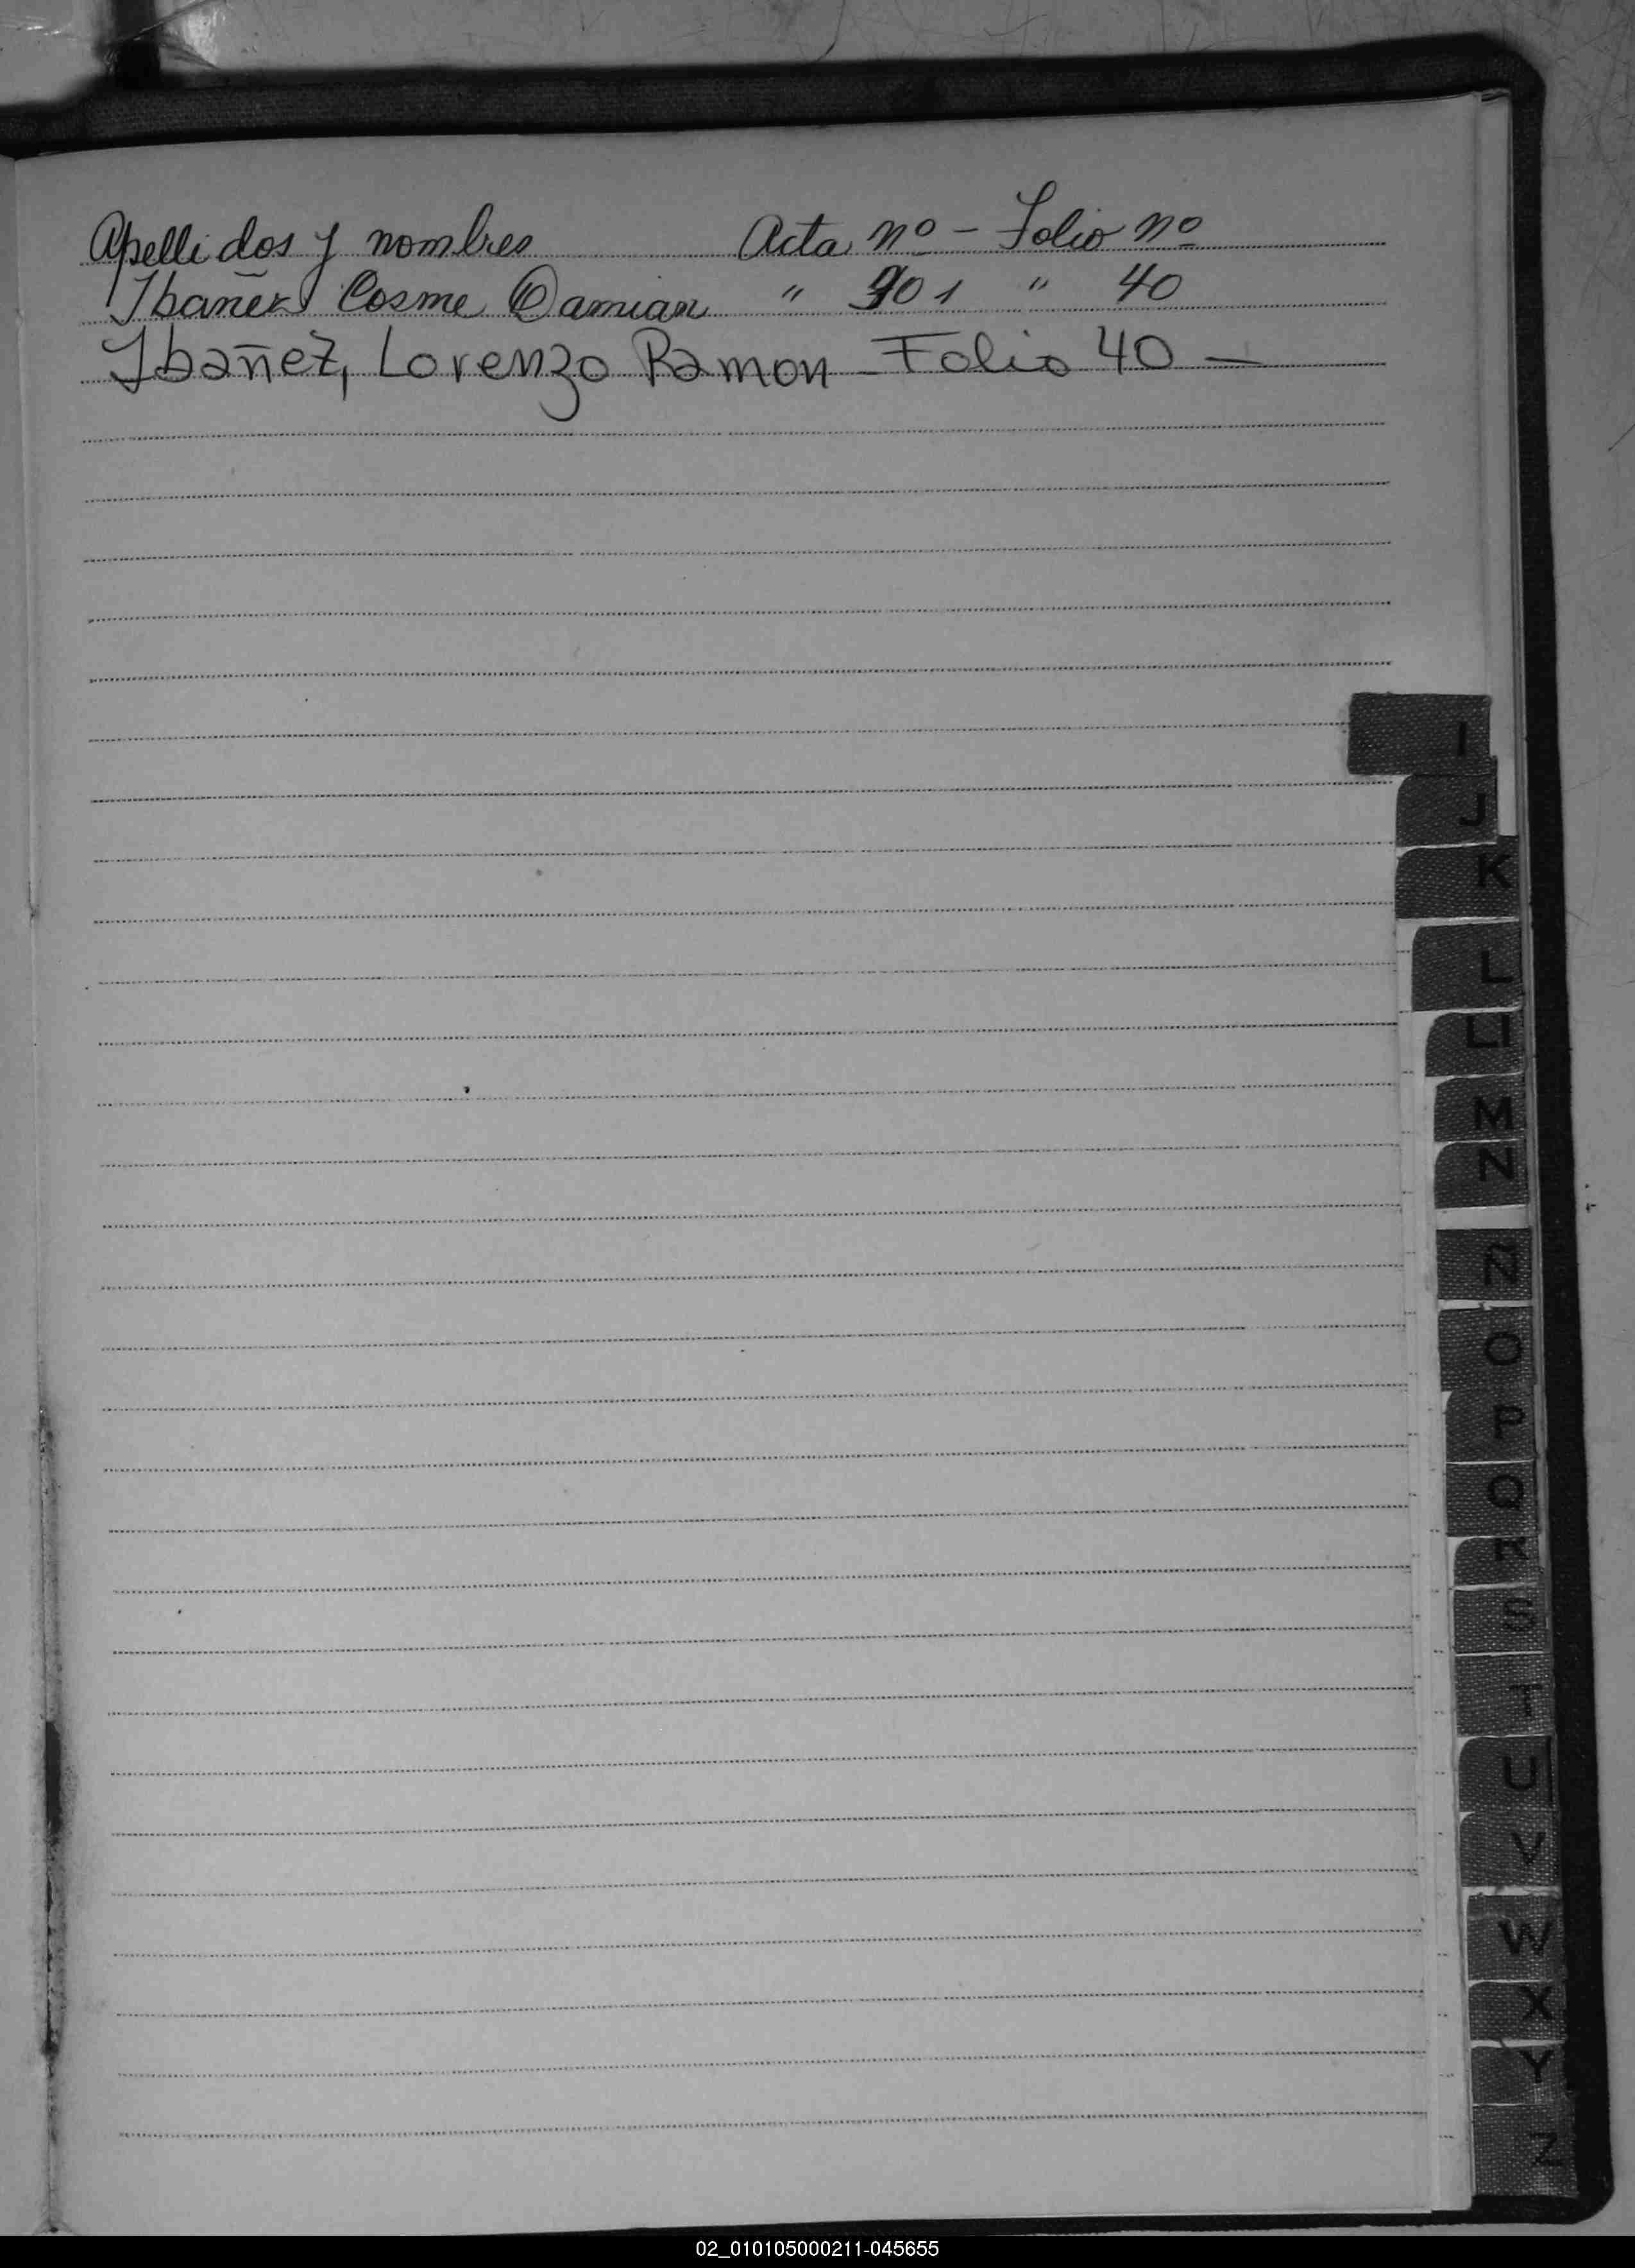 Apellidos y nombres Acta nº - Folio nº
Ibañez Cosme Damian " 901 " 40
Ibañez, Lorenzo Ramon - Folio 40 —
I
J
K
L
Ll
M
N
Ñ
O
P
Q
R
S
T
U
V
W
X
Y
Z
02_010105000211-045655